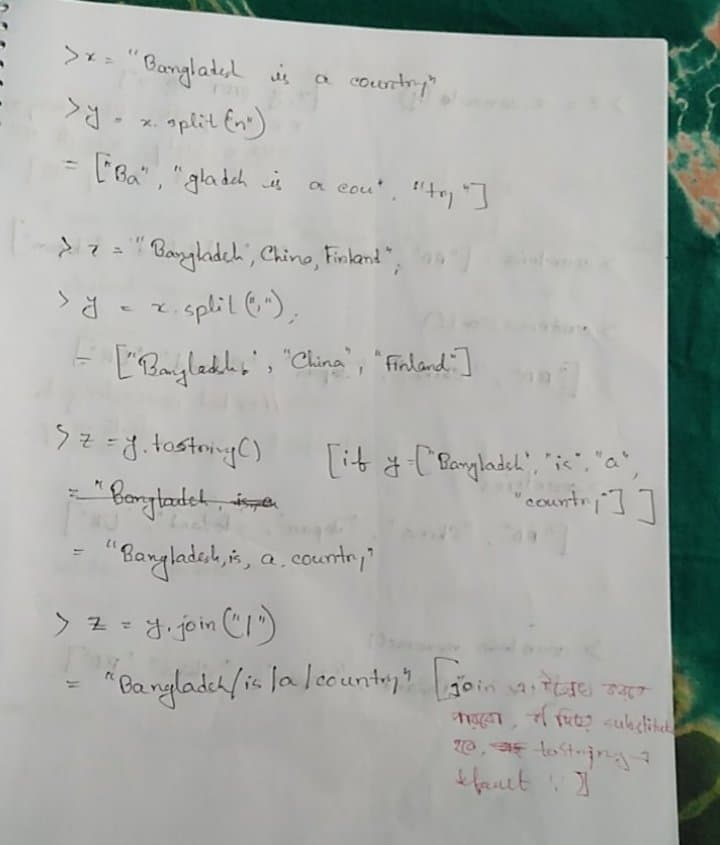 > x = "Bangladesh is a country"
> y = x. split ("n")
= ["Ba", "gladesh is a cou", "try"]
> x = "Bangladesh, China, Finland";
> y = x. split (",");
= ["Bangladesh", "China", "Finland"]
> z = y.tostring() [if y = ["Bangladesh", "is", "a",
"country"] ]
= "Bangladesh, is, a
= "Bangladesh, is, a, country"
> z = y.join("|")
= "Bangladesh/is/a/country" [join
substitute
tostring এ
default ',' ]